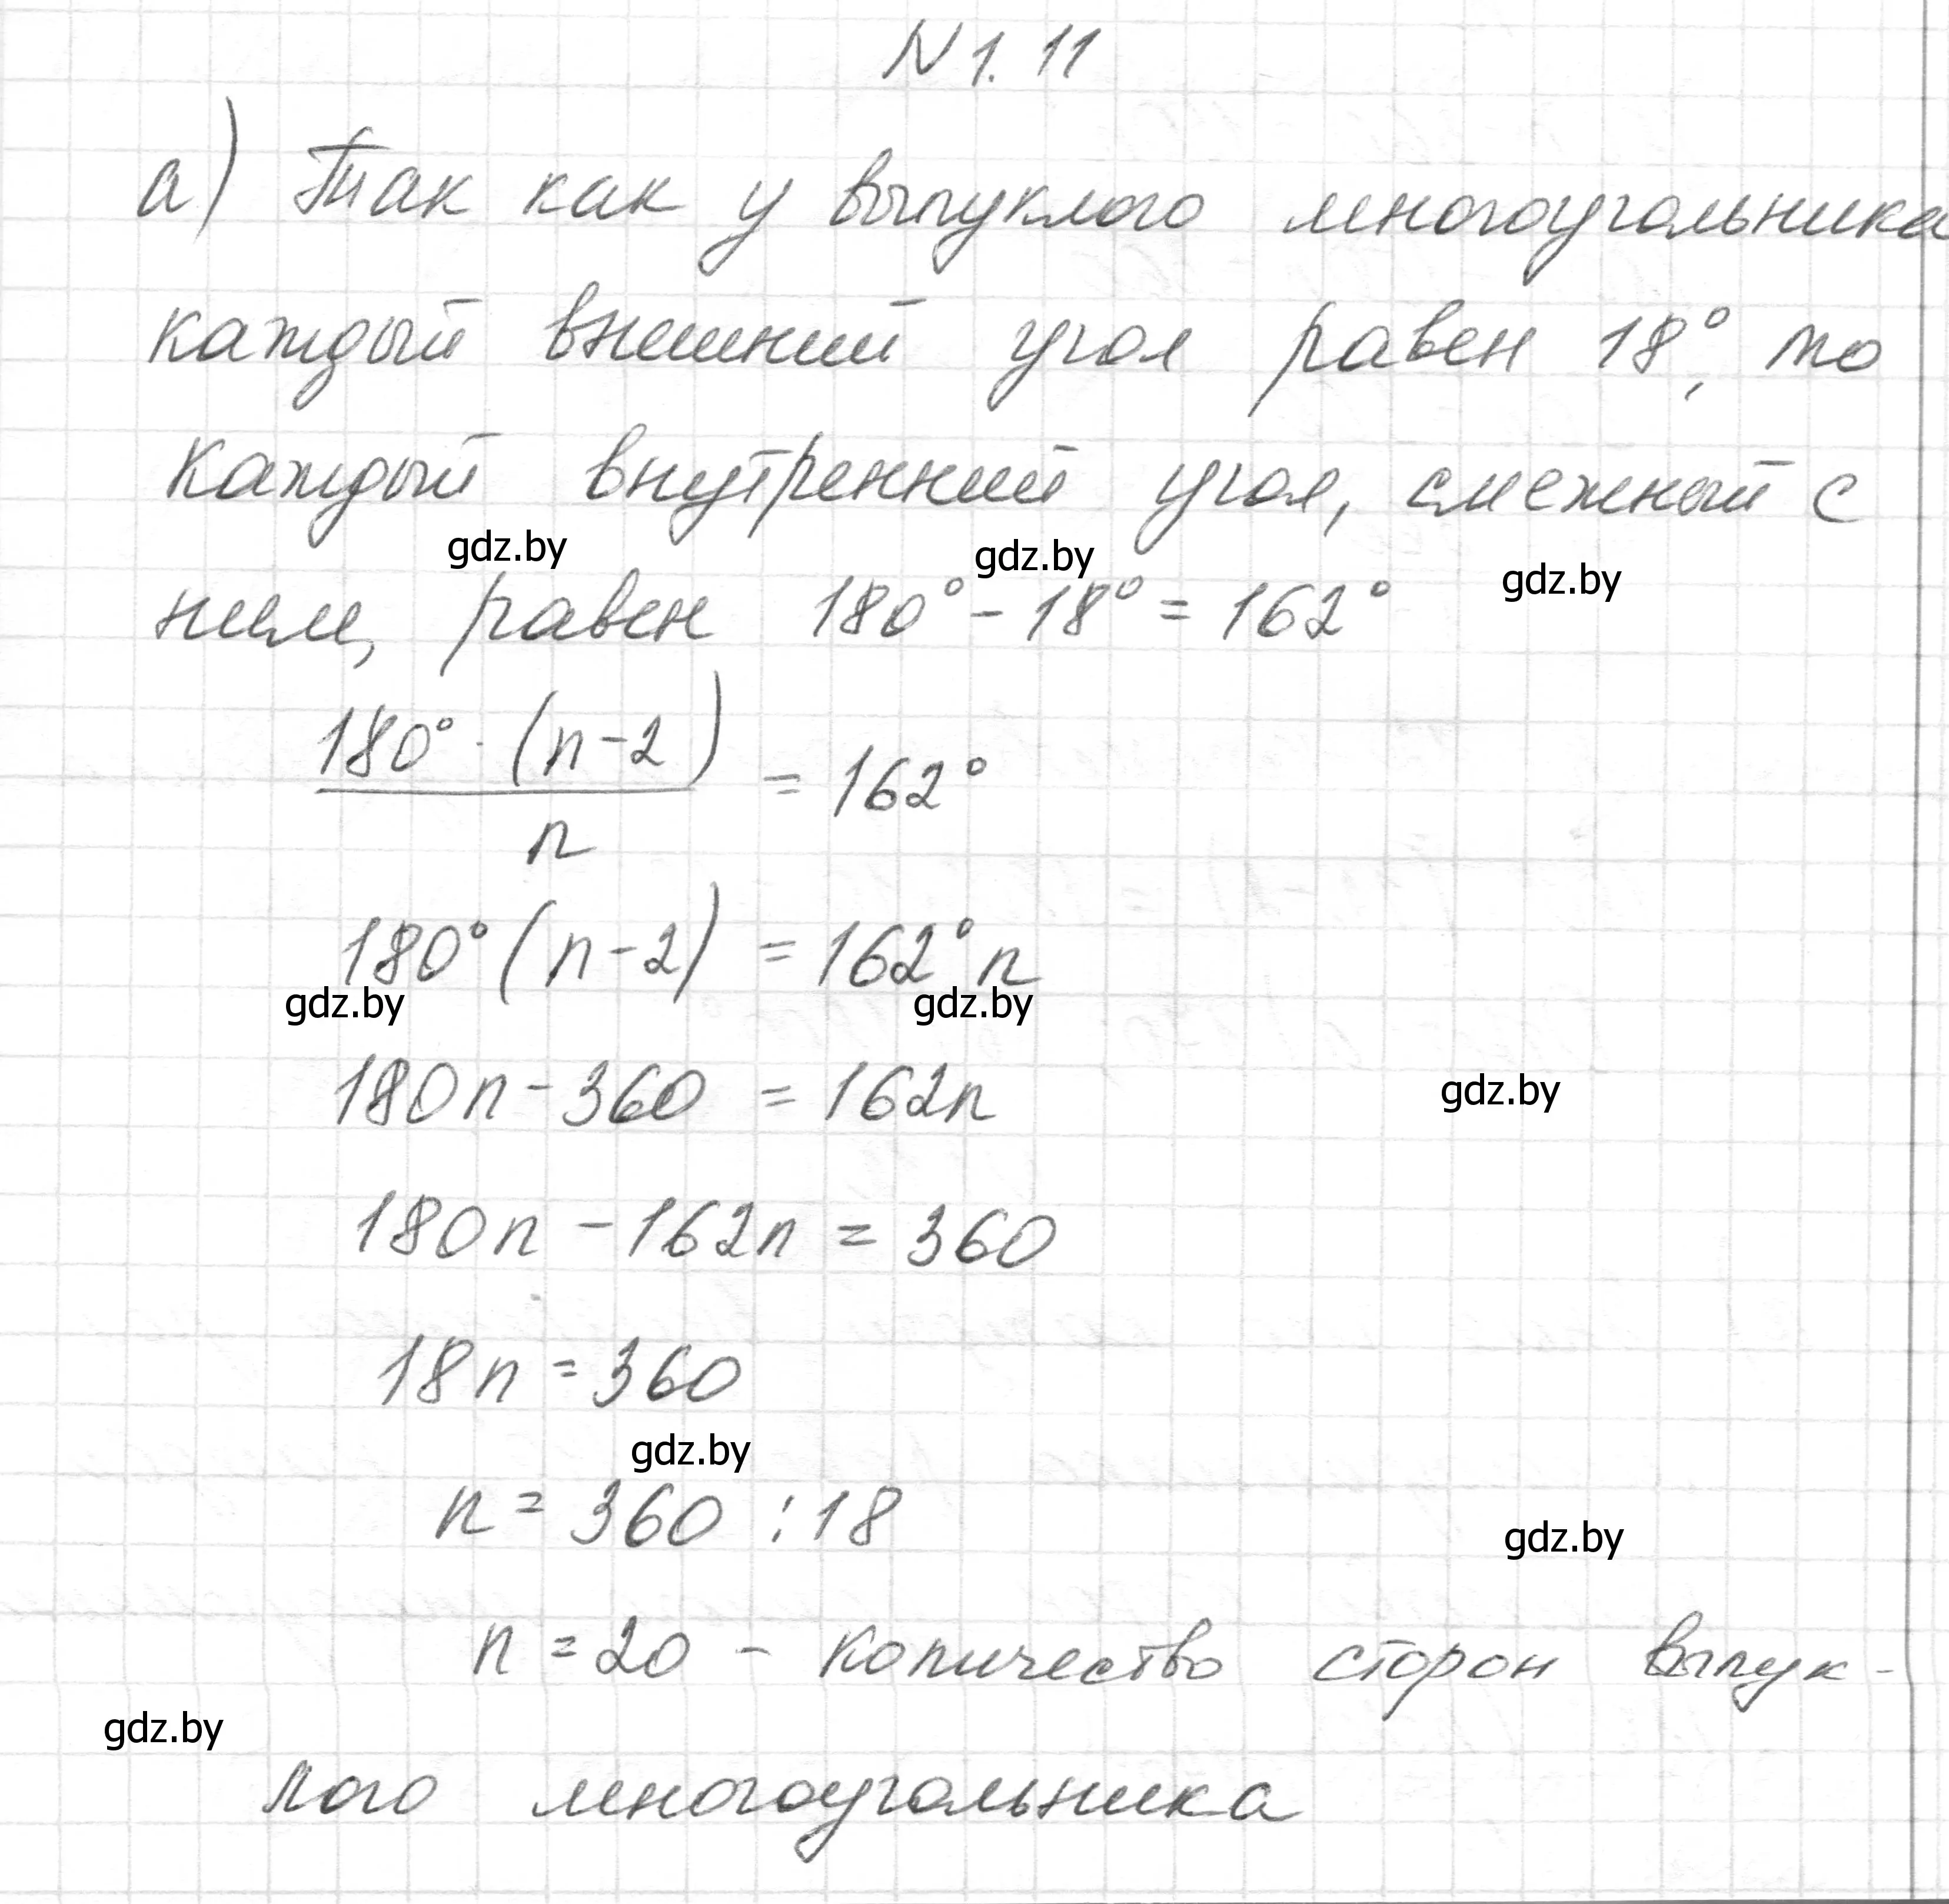 N 1. 11
а) Так как у выпуклого многоугольника
каждый внешний угол равен 18°, то
каждый внутренний угол, смежный с
gdz.by gdz.by gdz.by
ним, равен 180° - 18° = 162°
180° · (n-2)
= 162°
n
180° (n-2) = 162° n
gdz.by gdz.by
180n - 360 = 162n
gdz.by
180n - 162n = 360
18n = 360
gdz.by
n = 360 : 18
gdz.by
n = 20 - количество сторон выпук-
gdz.by
лого многоугольника